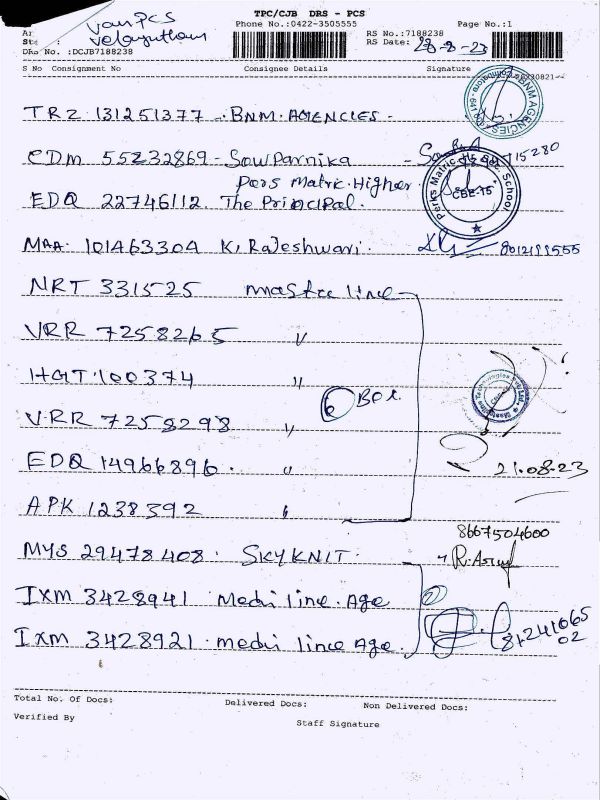 TPC/CJB DRS - PCS
Phone No.:0422-3505555
Page No.:1
van PCS
Velayutham
RS No.:7188238
RS Date: 28-8-23
DRS No. :DCJB7188238
S No Consignment No Consignee Details Signature
TRZ 131251377 - BNM. AGENCIES -
BNM AGENCIES
CDM 55232869 - Sowparnika
15280
Pers Matric. Higher
EDQ 22746112 The Principal.
Perks Matric Hr. Sec. School
CBE-15
MAA 101463304 K. Rajeshwari.
NRT 331525 mastee line
VRR 7258265 "
HGT 100374 "
6 Box.
VRR 7258298 "
EDQ 14966896. "
21.08.23
APK 1238392 "
8667504600
MYS 29478408. SKYKNIT.
IXM 3428941 Medri line. Age
2
IXM 3428921. medri line Age.
81241065
02
Total No. Of Docs: Delivered Docs: Non Delivered Docs:
Verified By Staff Signature